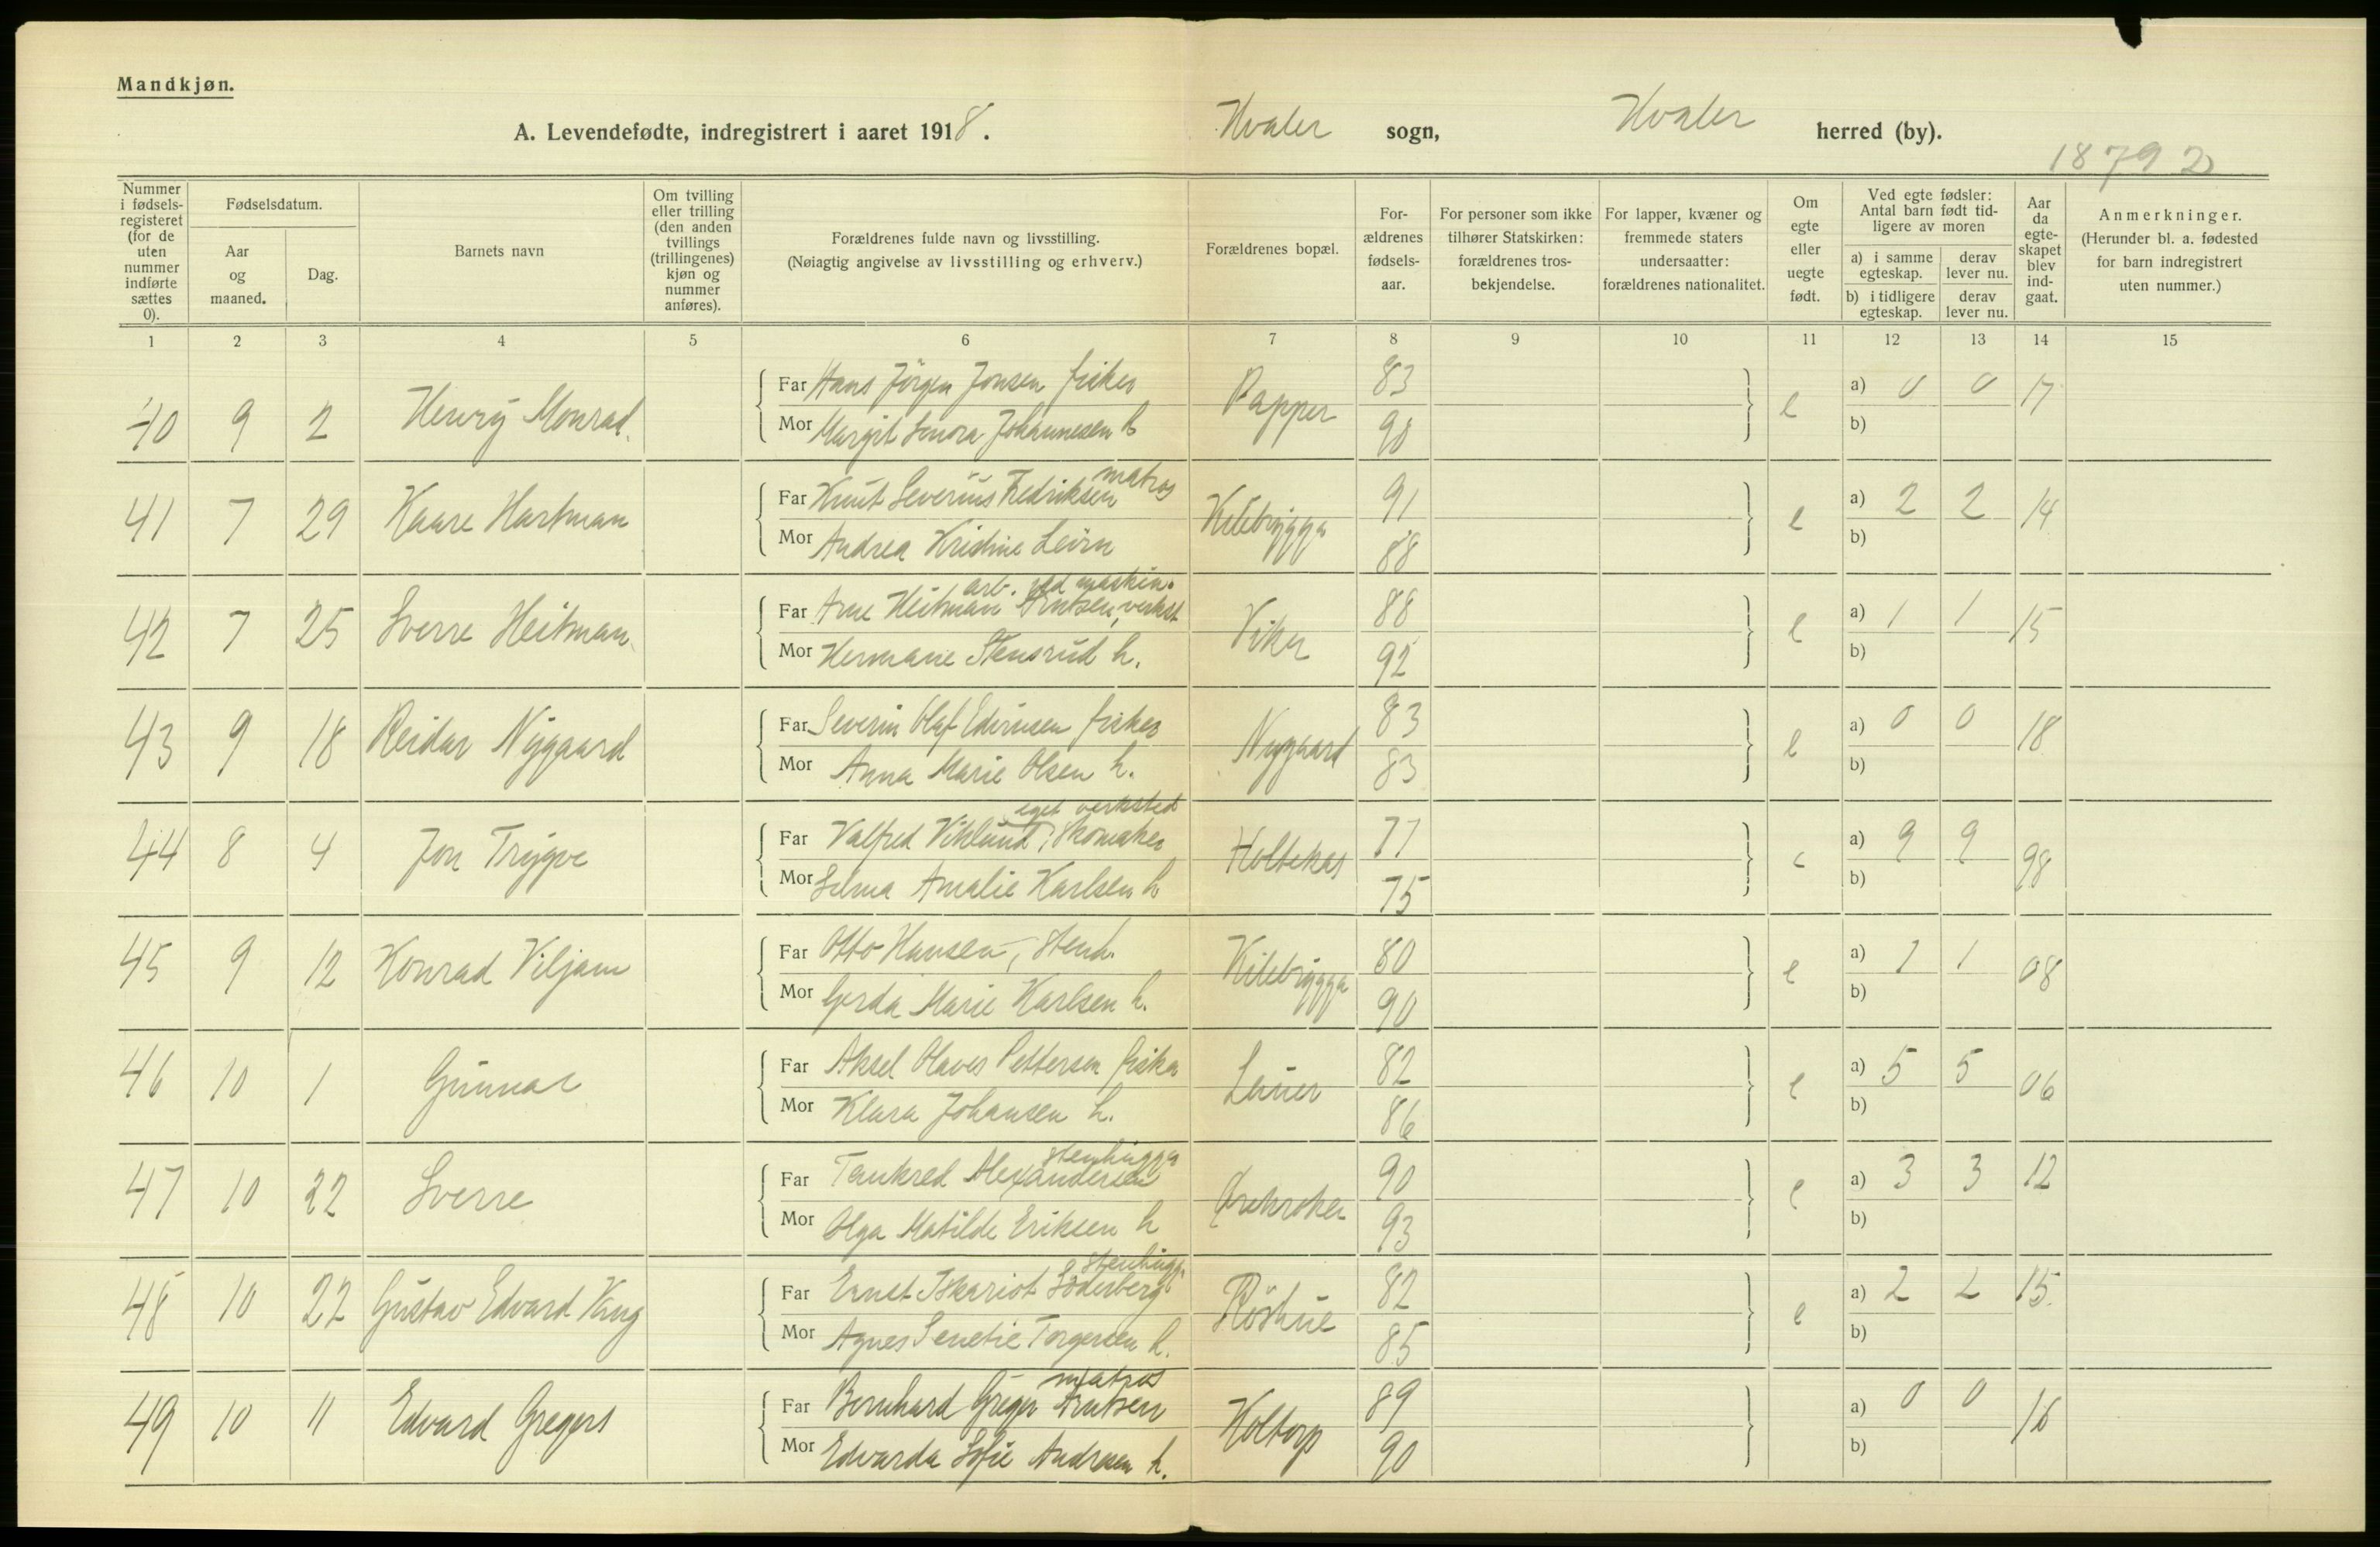 Mandkjøn.
A. Levendefødte, indregistrert i aaret 1918. Hvaler sogn, Hvaler herred (by).
18792
Nummer i fødsels-registeret (for de uten nummer indførte sættes 0).
Fødselsdatum.
Aar og maaned.
Dag.
Barnets navn
Om tvilling eller trilling (den anden tvillings (trillingenes) kjøn og nummer anføres).
Forældrenes fulde navn og livsstilling.
(Nøiagtig angivelse av livsstilling og erhverv.)
Forældrenes bopæl.
For-ældrenes fødsels-aar.
For personer som ikke tilhører Statskirken: forældrenes tros-bekjendelse.
For lapper, kvæner og fremmede staters undersaatter: forældrenes nationalitet.
Om egte eller uegte født.
Ved egte fødsler: Antal barn født tid-ligere av moren
a) i samme egteskap.
derav lever nu.
b) i tidligere egteskap.
derav lever nu.
Aar da egte-skapet blev ind-gaat.
Anmerkninger.
(Herunder bl. a. fødested for barn indregistrert uten nummer.)
1 2 3 4 5 6 7 8 9 10 11 12 13 14 15
Far Hans Jörgen Jonsen fisker 83 a) 0 0 17
40 9 2 Henry Monrad. Papper e
Mor Margit Johannesen h 90 b)
matros
Far Knut Severius Fredriksen 91 a) 2 2 14
41 7 29 Kaare Hartman Kilebrygga e
Mor Andrea Kristine 88 b)
arb. ved maskin.
Far Arne Heitman Arntsen, verkst 88 a) 1 1 15
42 7 25 Sverre Heitman Vika e
Mor Hermane Stensrud h. 92 b)
Far Severin Olaf fisker 83 a) 0 0 18
43 9 18 Reidar Nygaard Nygaard e
Mor Anna Marie Olsen h. 83 b)
eget verksted
Far Valfred Viklund, Skomaker 77 a) 9 9 98
44 8 4 Jon Trygve Holtekas
Mor Selma Amalie Karlsen h 75 b)
Far Otto Hansen, stenh. 80 a) 1 1 08
45 9 12 Konrad Viljam Kilebrygga e
Mor Gerda Marie Karlsen h. 90 b)
Far Aksel Olaves Pettersen fisker 82 a) 5 5 06
46 10 1 Gunnar Lauer e
Mor Klara Johansen h. 86 b)
stenhugga
Far Tankred Alexandersen 90 a) 3 3 12
47 10 22 Sverre e
Mor Olga Matilde Eriksen h 93 b)
stenhugg.
Far Ernst Iskariot Söderberg 82 a) 2 2 15.
48 10 22 Gustav Edvard King e
Mor Agnes Torgersen h. 85 b)
matros
Far Bernhard Greger Arntsen 89 a) 0 0 16
49 10 11 Edvard Gregers Holtorp
Mor Edvarda Sofie Andresen h. 90 b)